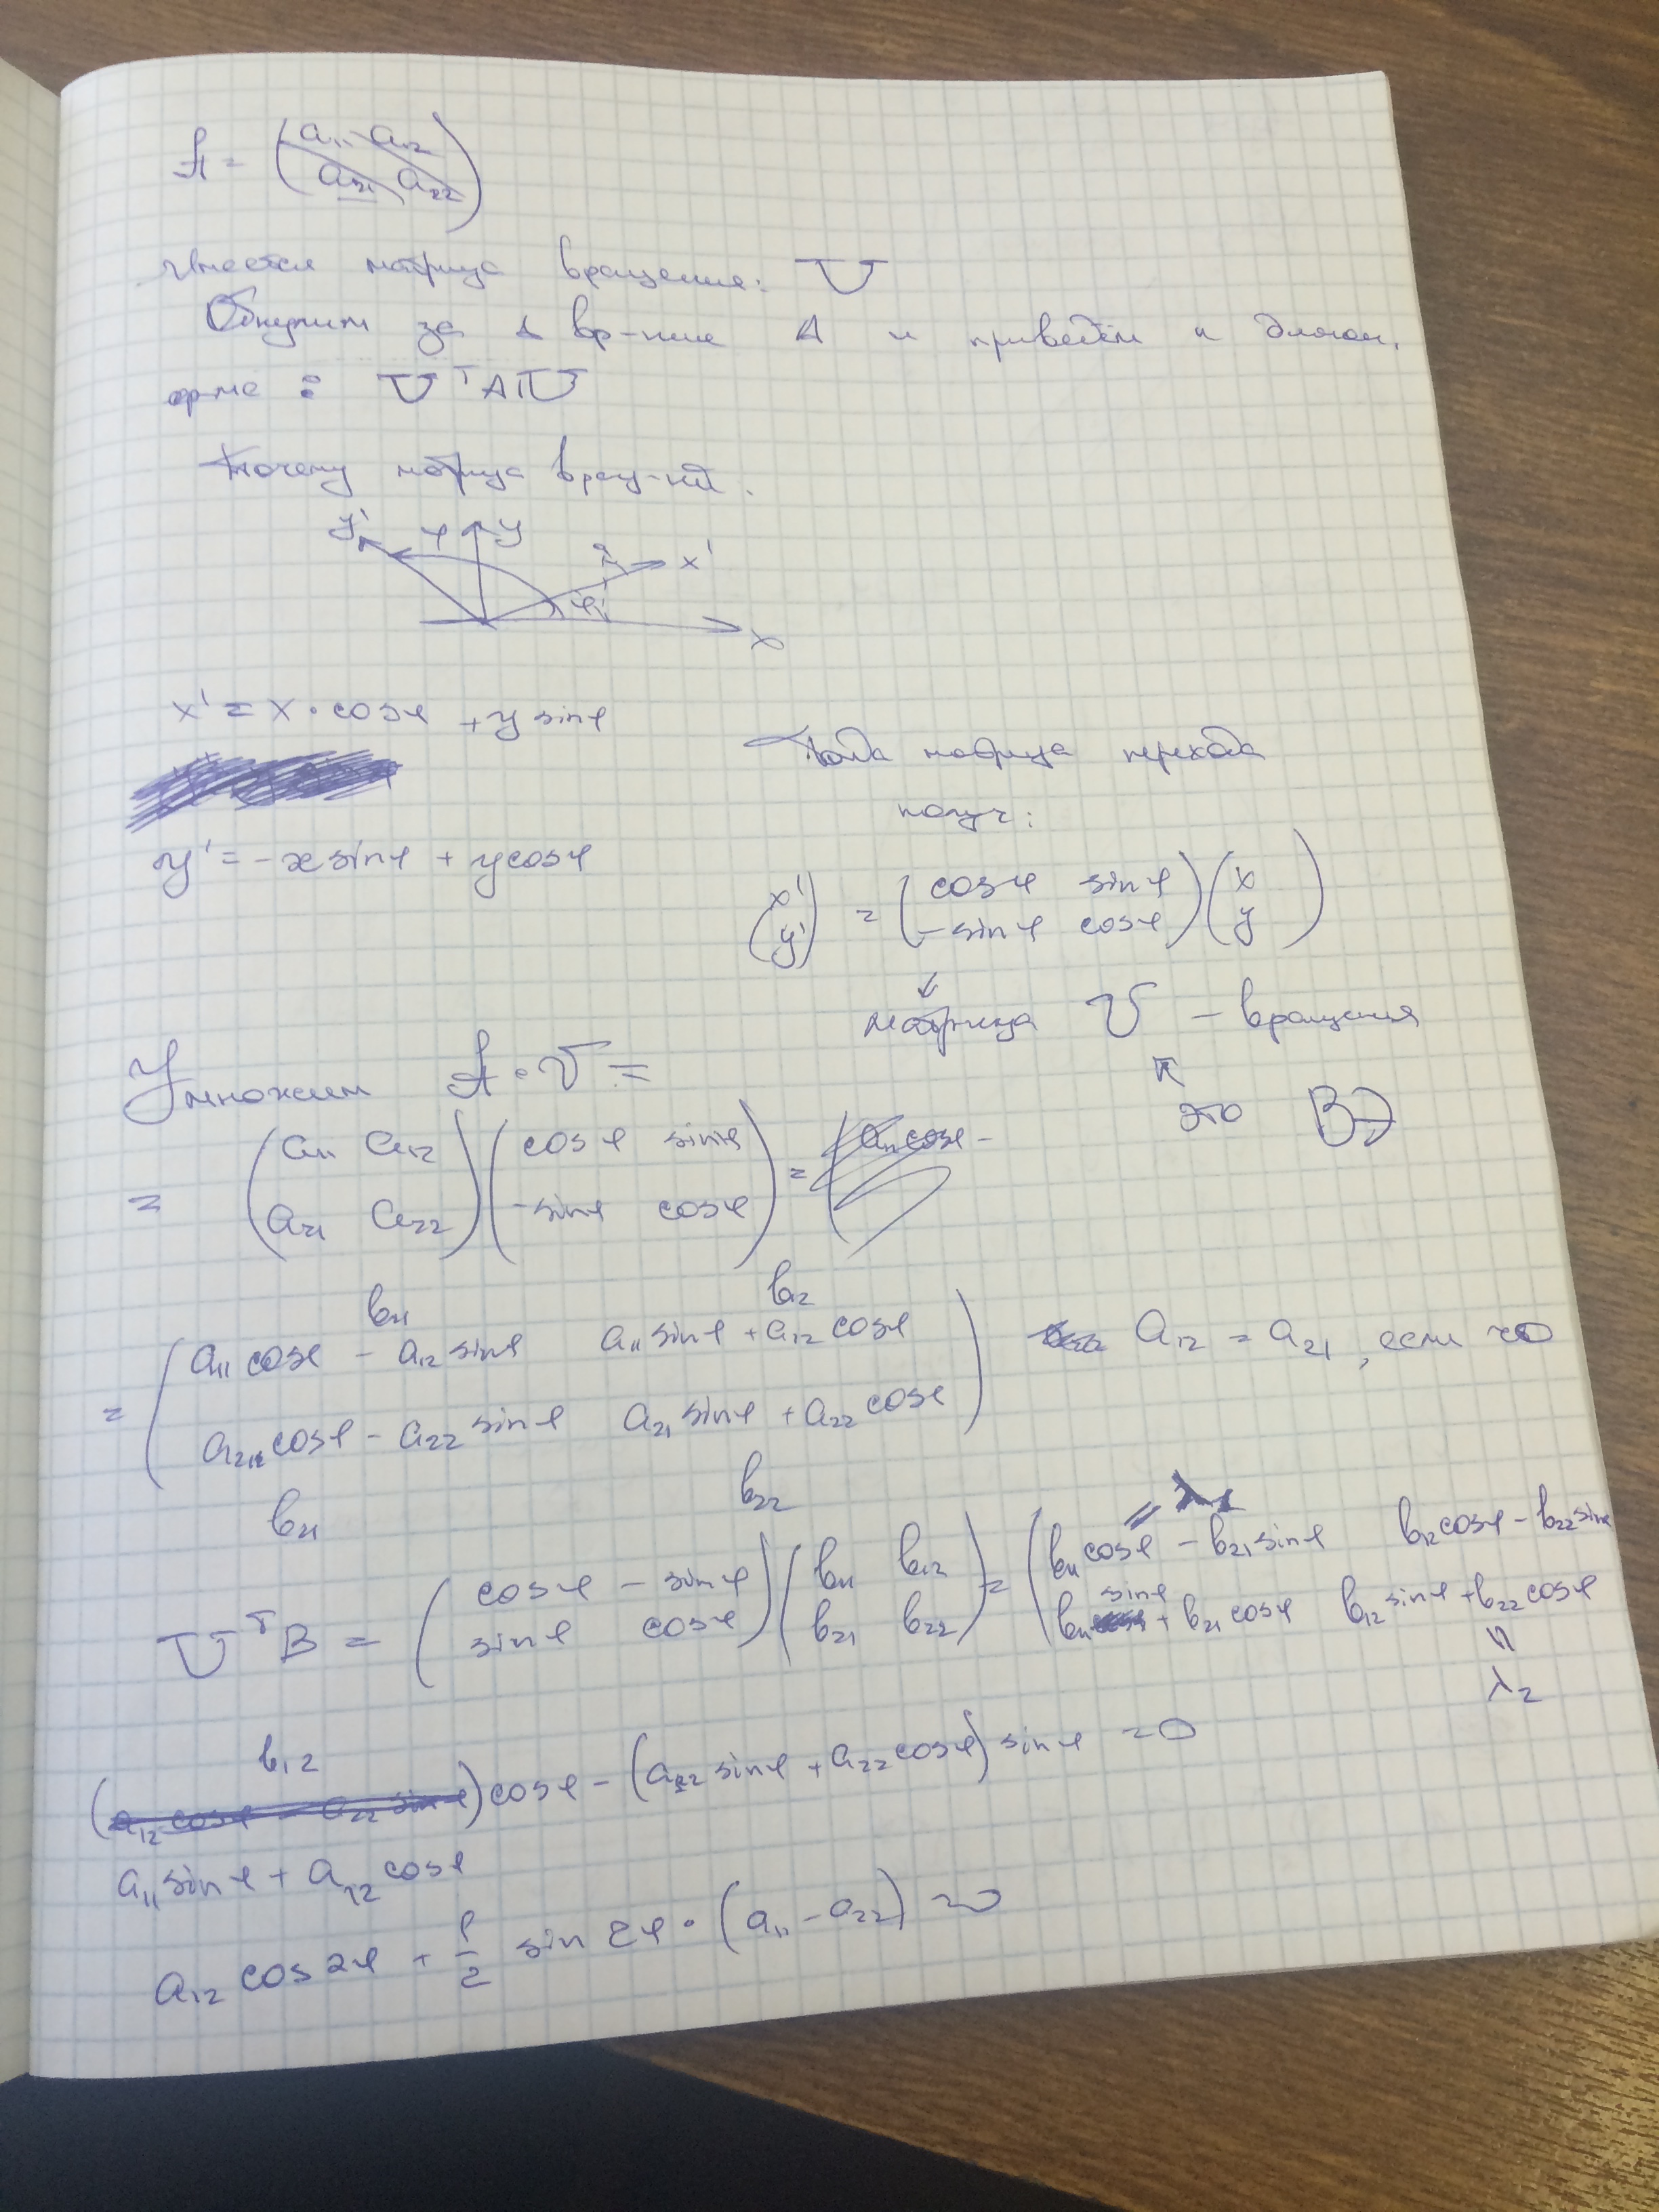 A = (a₁₁ a₁₂
a₂₁ a₂₂)
Имеется матрица вращения: U
Обнулим за 1 вр-ние A и приведём к диагон.
ф-ме : UᵀAU
Почему матрица вращ-ия.
y' φ y x'
φ x
x' = x · cosφ + y sinφ
y' = -x sinφ + y cosφ
Тогда матрица перехода
получ:
(x' y') = (cosφ sinφ
-sinφ cosφ) (x y)
↓
матрица U – вращения
это ВЭ
Умножим A · U =
= (a₁₁ a₁₂
a₂₁ a₂₂) (cosφ sinφ
-sinφ cosφ) =
b₁₁ b₁₂
= (a₁₁ cosφ - a₁₂ sinφ a₁₁ sinφ + a₁₂ cosφ
a₂₁ cosφ - a₂₂ sinφ a₂₁ sinφ + a₂₂ cosφ)
a₁₂ = a₂₁, если
b₂₁ b₂₂
UᵀB = (cosφ - sinφ
sinφ cosφ) (b₁₁ b₁₂
b₂₁ b₂₂) = (b₁₁ cosφ - b₂₁ sinφ b₁₂ cosφ - b₂₂ sinφ
b₁₁ sinφ + b₂₁ cosφ b₁₂ sinφ + b₂₂ cosφ)
= λ₁
= λ₂
b₁₂
( ) cosφ - (a₁₂ sinφ + a₂₂ cosφ) sinφ = 0
a₁₁ sinφ + a₁₂ cosφ
a₁₂ cos 2φ + 1/2 sin 2φ · (a₁₁ - a₂₂) = 0